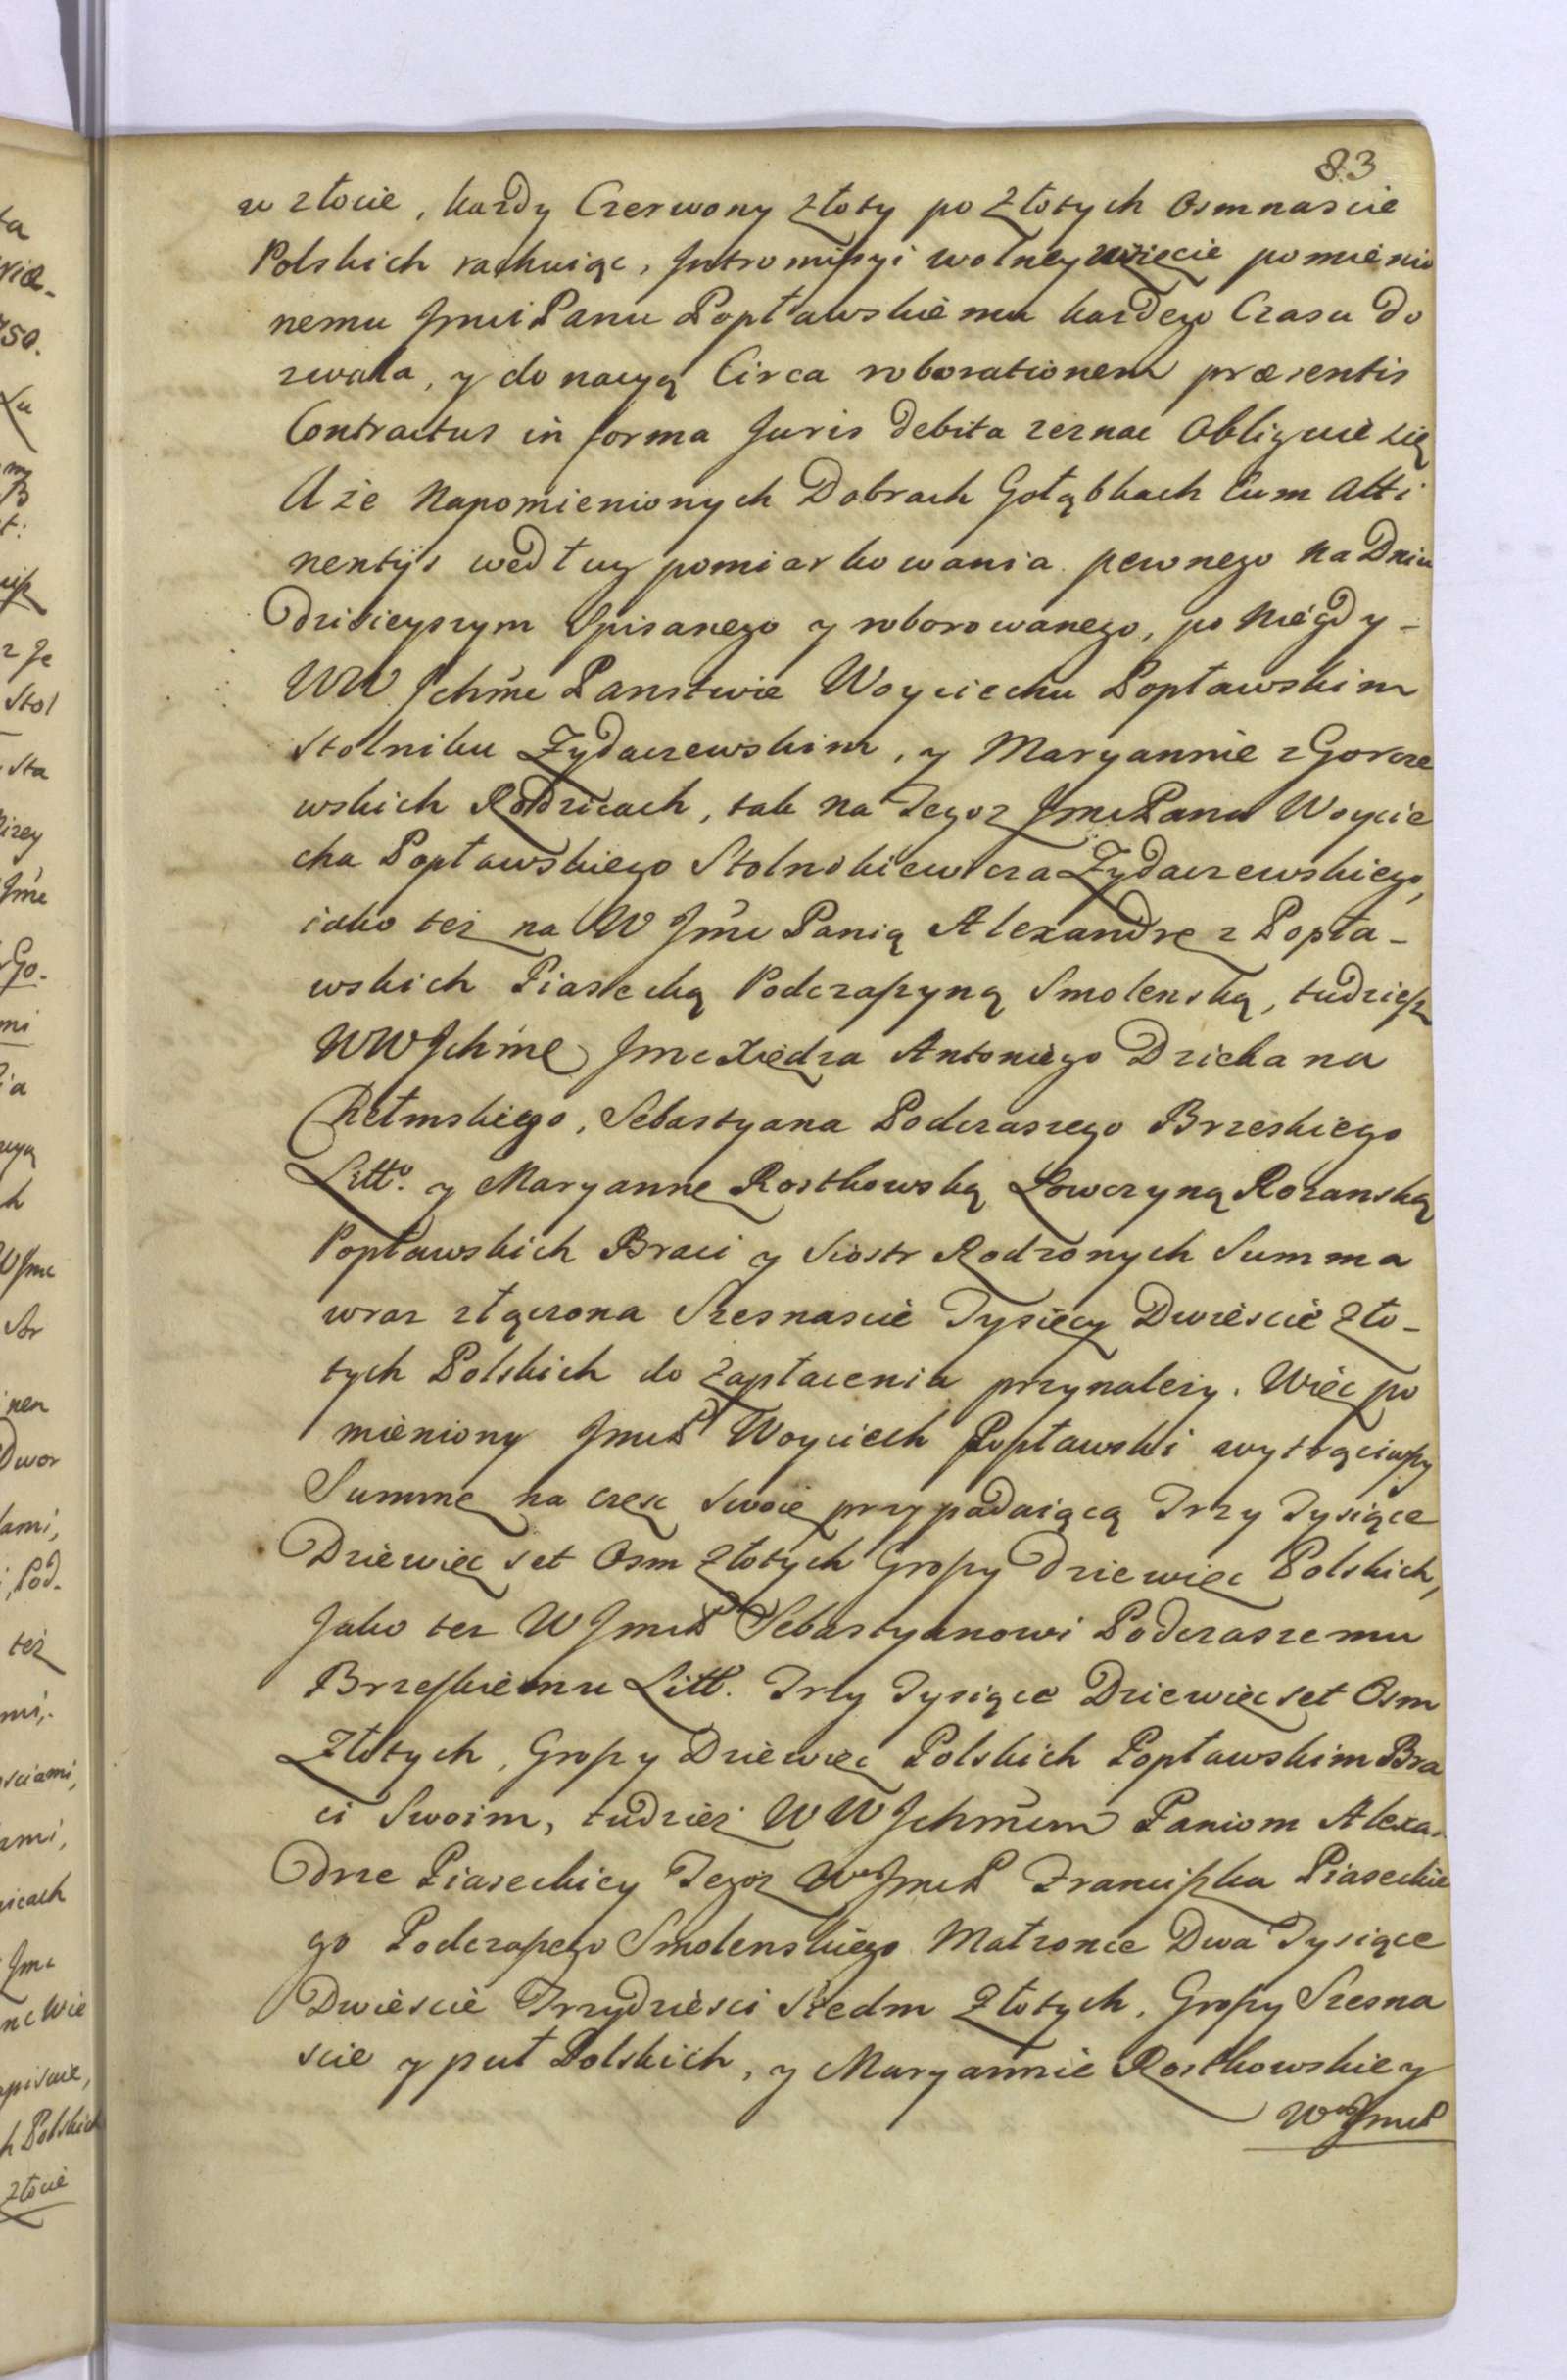 83
w złocie, każdy Czerwony złoty po złotych Osmnascie
Polskich rachuiąc, Intromissyi wolney wzięcie pomienio
nemu Jmci Panu Popławskiemu każdego Czasu do
zwala, y donacyą Circa roborationem præsentis
Contractus in forma Juris debita zeznac Obliguie się
A że Napomienionych Dobrach Gołąbkach Cum Atti
nentÿs według pomiarkowania pewnego na Dniu
dzisieyszym Spisanego y roborowanego, po niegdy -
WW Jchmc Panstwie Woyciechu Popławskim
Stolniku Zydaczewskim, y Maryannie z Gorcze
wskich Rodzicach, tak na Tegoz Jmc Pana Woycie
cha Popławskiego Stolnikiewicza Zydaczewskiego,
iako też na W Jmc Panią Alexandrę z Popła-
wskich Piasecką Podczaszyną Smolenską, tudziesz
WWJchmc Jmc Xiędza Antoniego Dziekana
Chełmskiego, Sebastyana Podczaszego Brzeskiego
Litto. y Maryannę Rostkowską Łowczyną Rozanską
Popławskich Braci y Siostr Rodzonych Summa
wraz złączona Szesnascie Tysięcy Dwiescie Zło-
tych Polskich do Zapłacenia przynależy. Więc po
mieniony JmcP Woyciech Popławski wytrąciwszy
Summę na częsc Swoię przypadaiącą Trzy Tysiące
Dziewięc set Osm Złotych Groszy Dziewięc Polskich,
Jako tez W JmcP Sebastyanowi Podczaszemu
Brzeskiemu Litt. Trzy Tysiące Dziewięc set Osm
Złotych, Groszy Dziewięc Polskich Popławskim Bra
ci Swoim, tudzież WW Jchmcm Paniom Alexa-
drze Piaseckiey Tegoz Wo JmcP Franciszka Piaseckie
go Podczaszego Smolenskiego Małzonce Dwa Tysiące
Dwiescie Trzydziesci Siedm Złotych, Groszy Szesna
scie y puł Polskich, y Maryannie Rostkowskiey
Wo JmcP